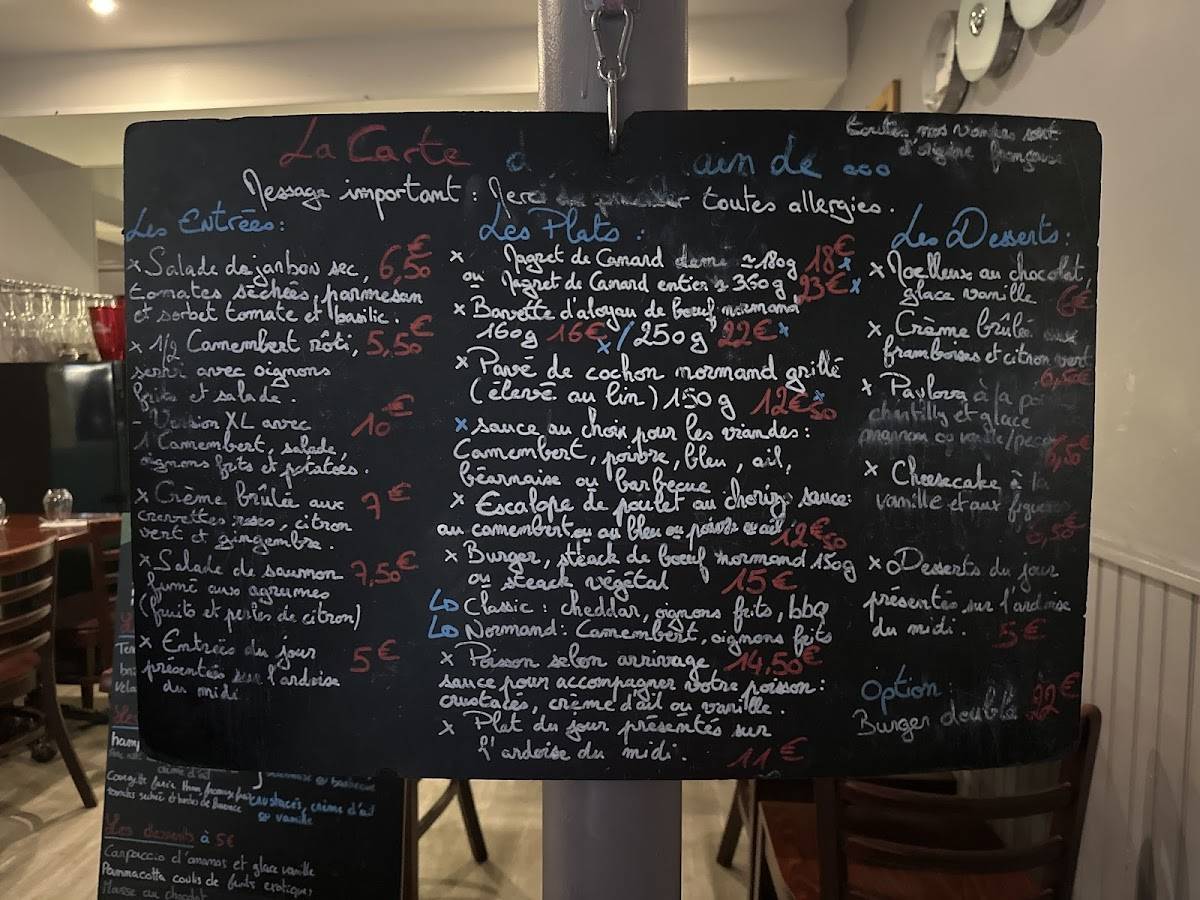 toutes nos viandes sont
d'origine française
La Carte d ain de ...
Message important : Merci de toutes allergies.
Les Entrées :
x Salade de jambon sec, 6,50€
tomates séchées, parmesan
et sorbet tomate et basilic.
x 1/2 Camembert rôti, 5,50€
servi avec oignons
frits et salade.
- Version XL avec 10€
1 Camembert, salade,
oignons frits et potatoes.
x Crème brûlée aux 7€
crevettes roses, citron
vert et gingembre.
x Salade de saumon 7,50€
fumé aux agrumes
(fruits et perles de citron)
x Entrées du jour 5€
présentées sur l'ardoise
du midi
Les Plats :
x Magret de Canard demi ≃180g 18€ x
ou Magret de Canard entier ≃ 360g 23€ x
x Bavette d'aloyau de bœuf normand
160g 16€ x / 250g 22€ x
x Pavé de cochon normand grillé
(élevé au lin) 150g 12€50 x
x sauce au choix pour les viandes :
Camembert, poivre, bleu, ail,
béarnaise ou barbecue
x Escalope de poulet au chorizo sauce:
au camembert ou au bleu ou poivre ou ail. 12€50
x Burger, steack de bœuf normand 150g
ou steack végétal 15€
Classic : cheddar, oignons frits, bbq
Normand : Camembert, oignons frits
x Poisson selon arrivage 14,50€
sauce pour accompagner votre poisson :
crustacés, crème d'ail ou vanille.
x Plat du jour présentés sur
l'ardoise du midi. 11€
Les Desserts :
x Moelleux au chocolat,
glace vanille 6€
x Crème brûlée aux
framboises et citron vert
6,50€
x Pavlova à la
chantilly et glace
6,50€
x Cheesecake à la
vanille et aux figues
6,50€
x Desserts du jour
présentés sur l'ardoise
du midi. 5€
Option :
Burger double 22€
crème d'ail
crustacés, crème d'ail
ou vanille
Les desserts à 5€
Carpaccio d'ananas et glace vanille
Pannacotta coulis de fruits exotiques
Mousse au chocolat